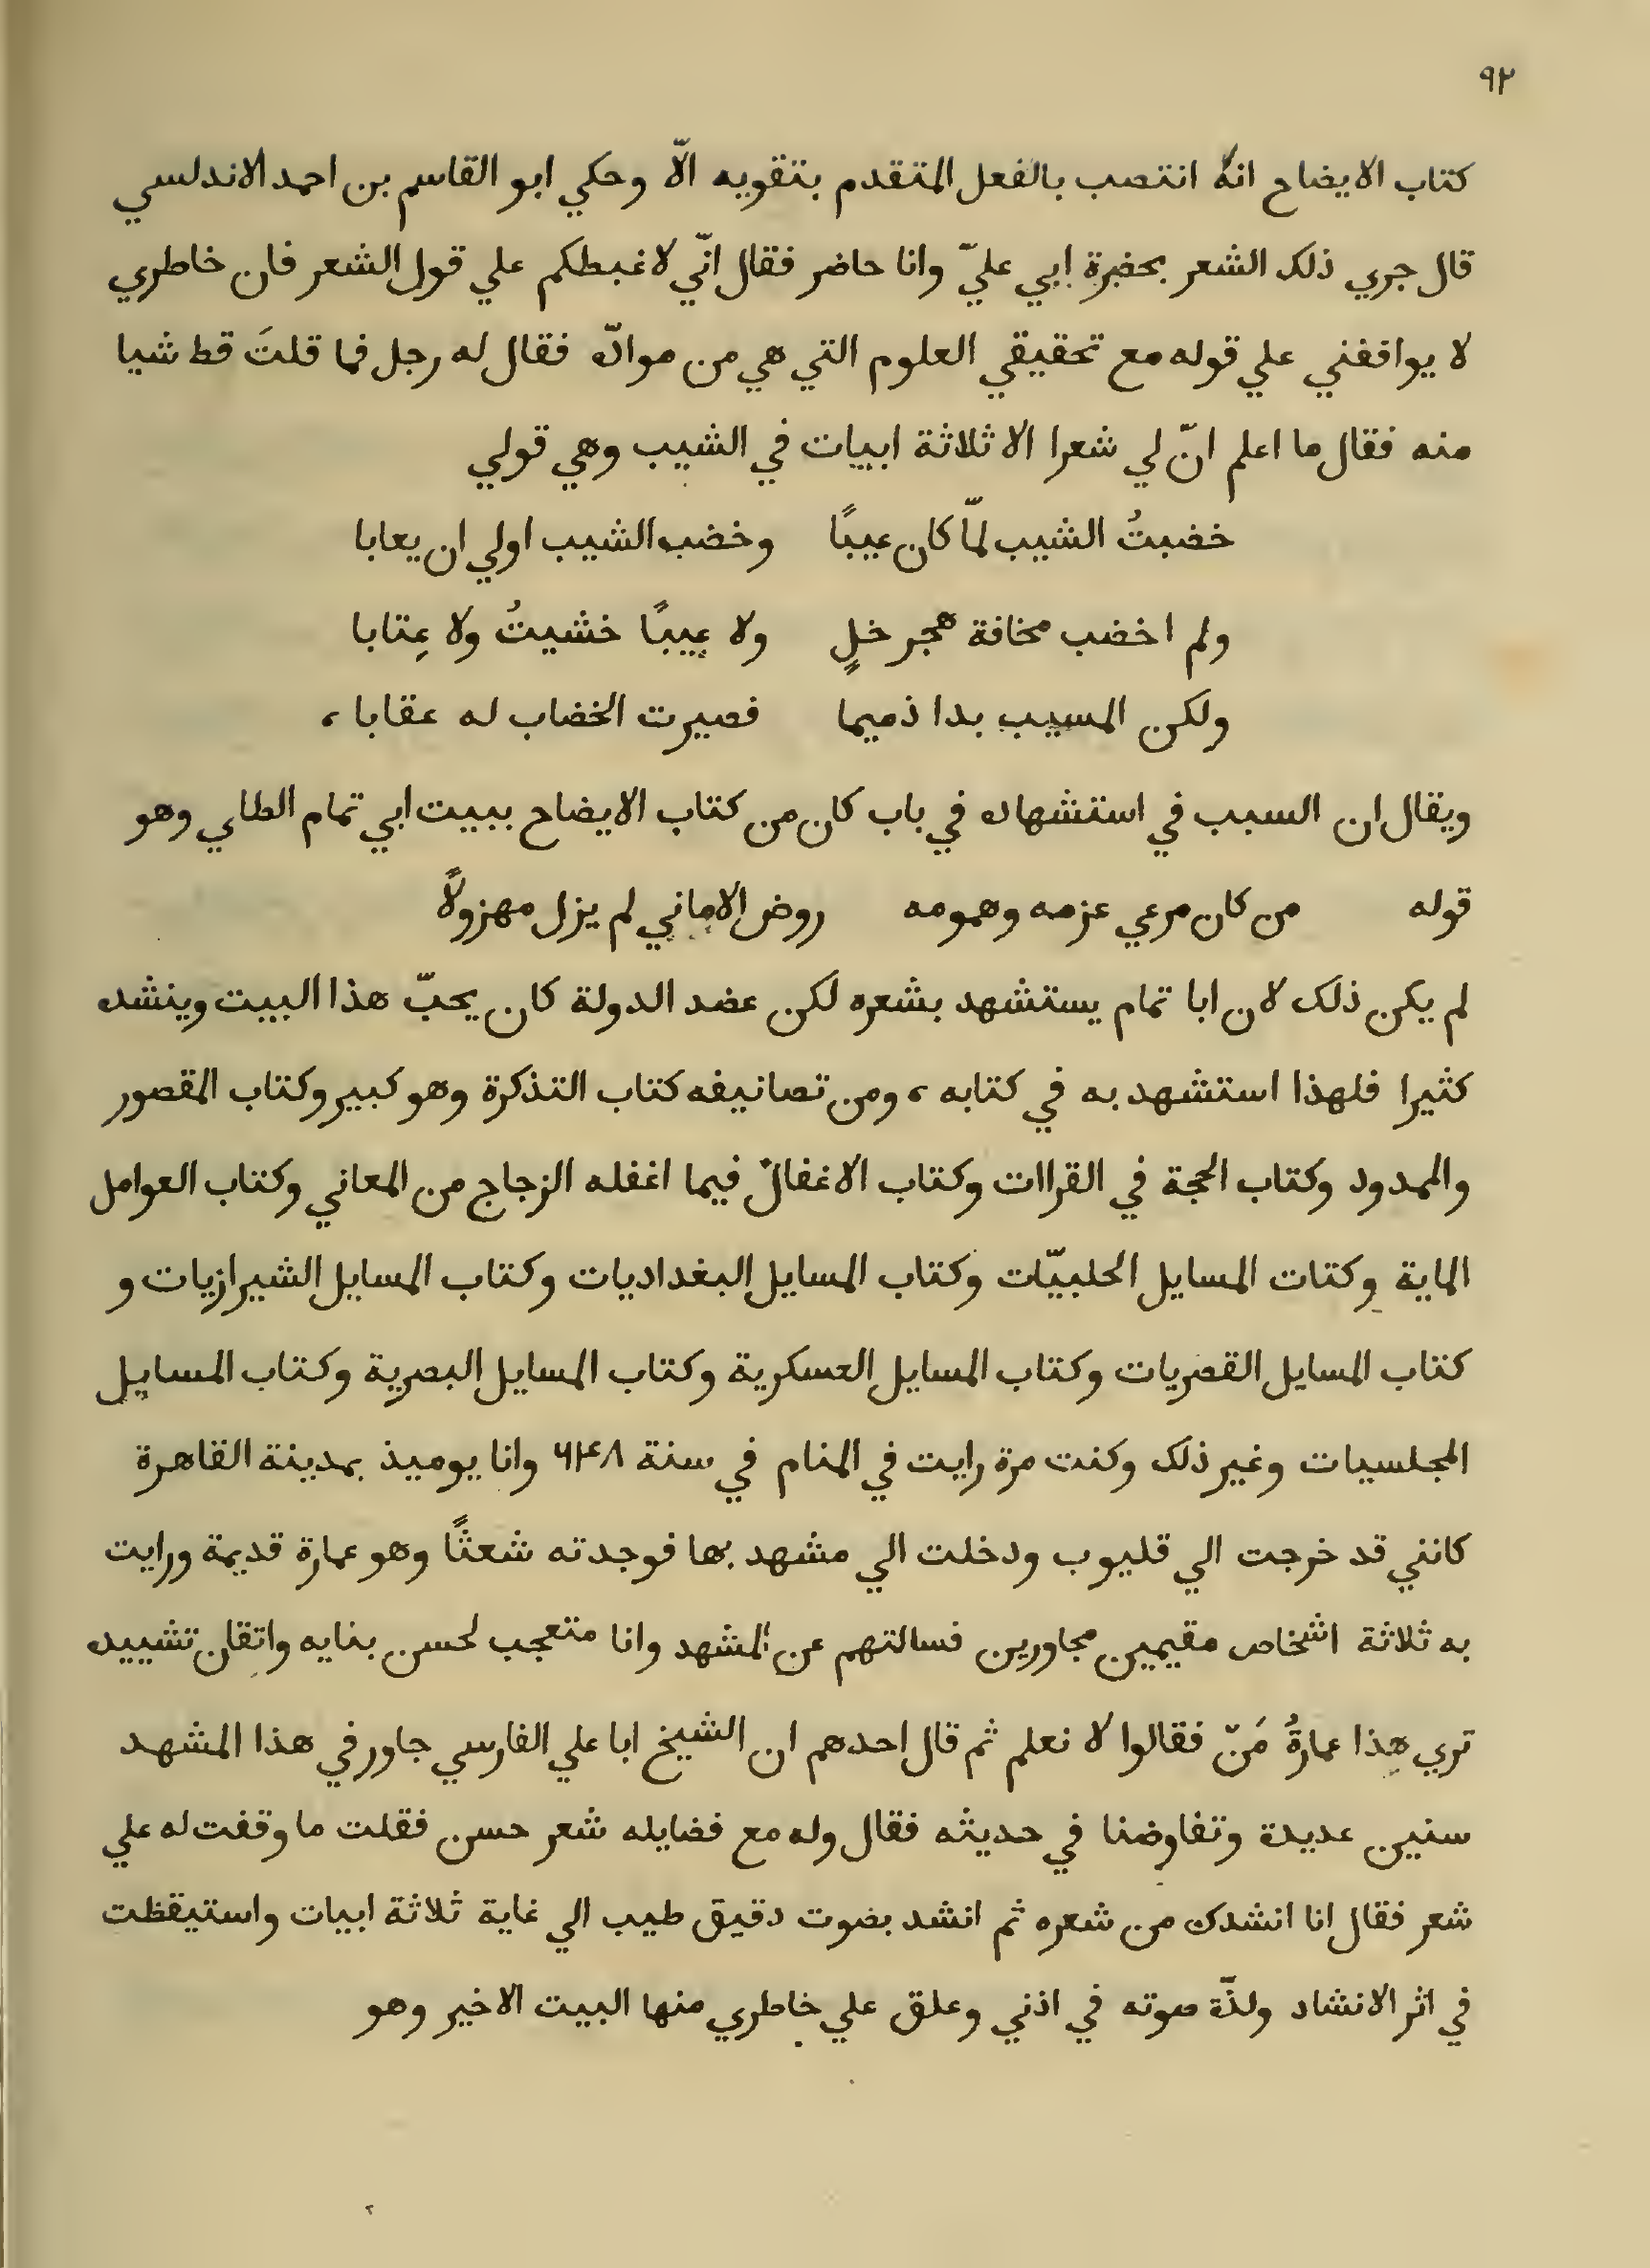 ٩٢
كتاب الايضاح انهُ انتصب بالفعل المتقدم بتقويه الّا وحكي ابو القاسم بن احمد الاندلسي
قال جري ذلك الشعر بحضرة ابي عليّ وانا حاضر فقال انّي لاغبطكم علي قول الشعر فان خاطري
لا يوافقني علي قوله مع تحقيقي العلوم التي هي من موادّه فقال له رجل فما قلتَ قط شيا
منه فقال ما اعلم انّ لي شعرا الا ثلاثة ابيات في الشيب وهي قولي
خضبتُ الشيب لمّا كان عيبًا وخضب الشيب اولي ان يعابا
ولم اخضب مخافة هجر خلٍ ولا عيبًا خشيتُ ولا عِتابا
ولكن المسيب بدا ذميما فصيرت الخضاب له عقابا،
ويقال ان السبب في استشهاده في باب كان من كتاب الايضاح ببيت ابي تمام الطاي وهو
قوله من كان مرعي عزمه وهمومه روض الاماني لم يزل مهزولًا
لم يكن ذلك لان ابا تمام يستشهد بشعره لكن عضد الدولة كان يحبّ هذا البيت وينشده
كثيرا فلهذا استشهد به في كتابه، ومن تصانيفه كتاب التذكرة وهو كبير وكتاب المقصور
والممدود وكتاب الحجة في القراات وكتاب الاغفال فيما اغفله الزجاج من المعاني وكتاب العوامل
الماية وكتات المسايل الحلبيّات وكتاب المسايل البغداديات وكتاب المسايل الشيرازيات و
كتاب المسايل القصريات وكتاب المسايل العسكرية وكتاب المسايل البصرية وكتاب المسايل
المجلسيات وغير ذلك وكنت مرة رايت في المنام في سنة ٦٤٨ وانا يوميذ بمدينة القاهرة
كانني قد خرجت الي قليوب ودخلت الي مشهد بها فوجدته شعثًا وهو عمارة قديمة ورايت
به ثلاثة اشخاص مقيمين مجاورين فسالتهم عن المشهد وانا متعجب لحسن بنايه واتقان تشييده
تري هذا عمارةُ مَنّ فقالوا لا نعلم ثم قال احدهم ان الشيخ ابا علي الفارسي جاور في هذا المشهد
سنين عديدة وتفاوضنا في حديثه فقال وله مع فضايله شعر حسن فقلت ما وقفت له علي
شعر فقال انا انشدك من شعره ثم انشد بضوت دقيق طيب الي غاية ثلاثة ابيات واستيقظت
في اثر الانشاد ولذّة صوته في اذني وعلق علي خاطري منها البيت الاخير وهو